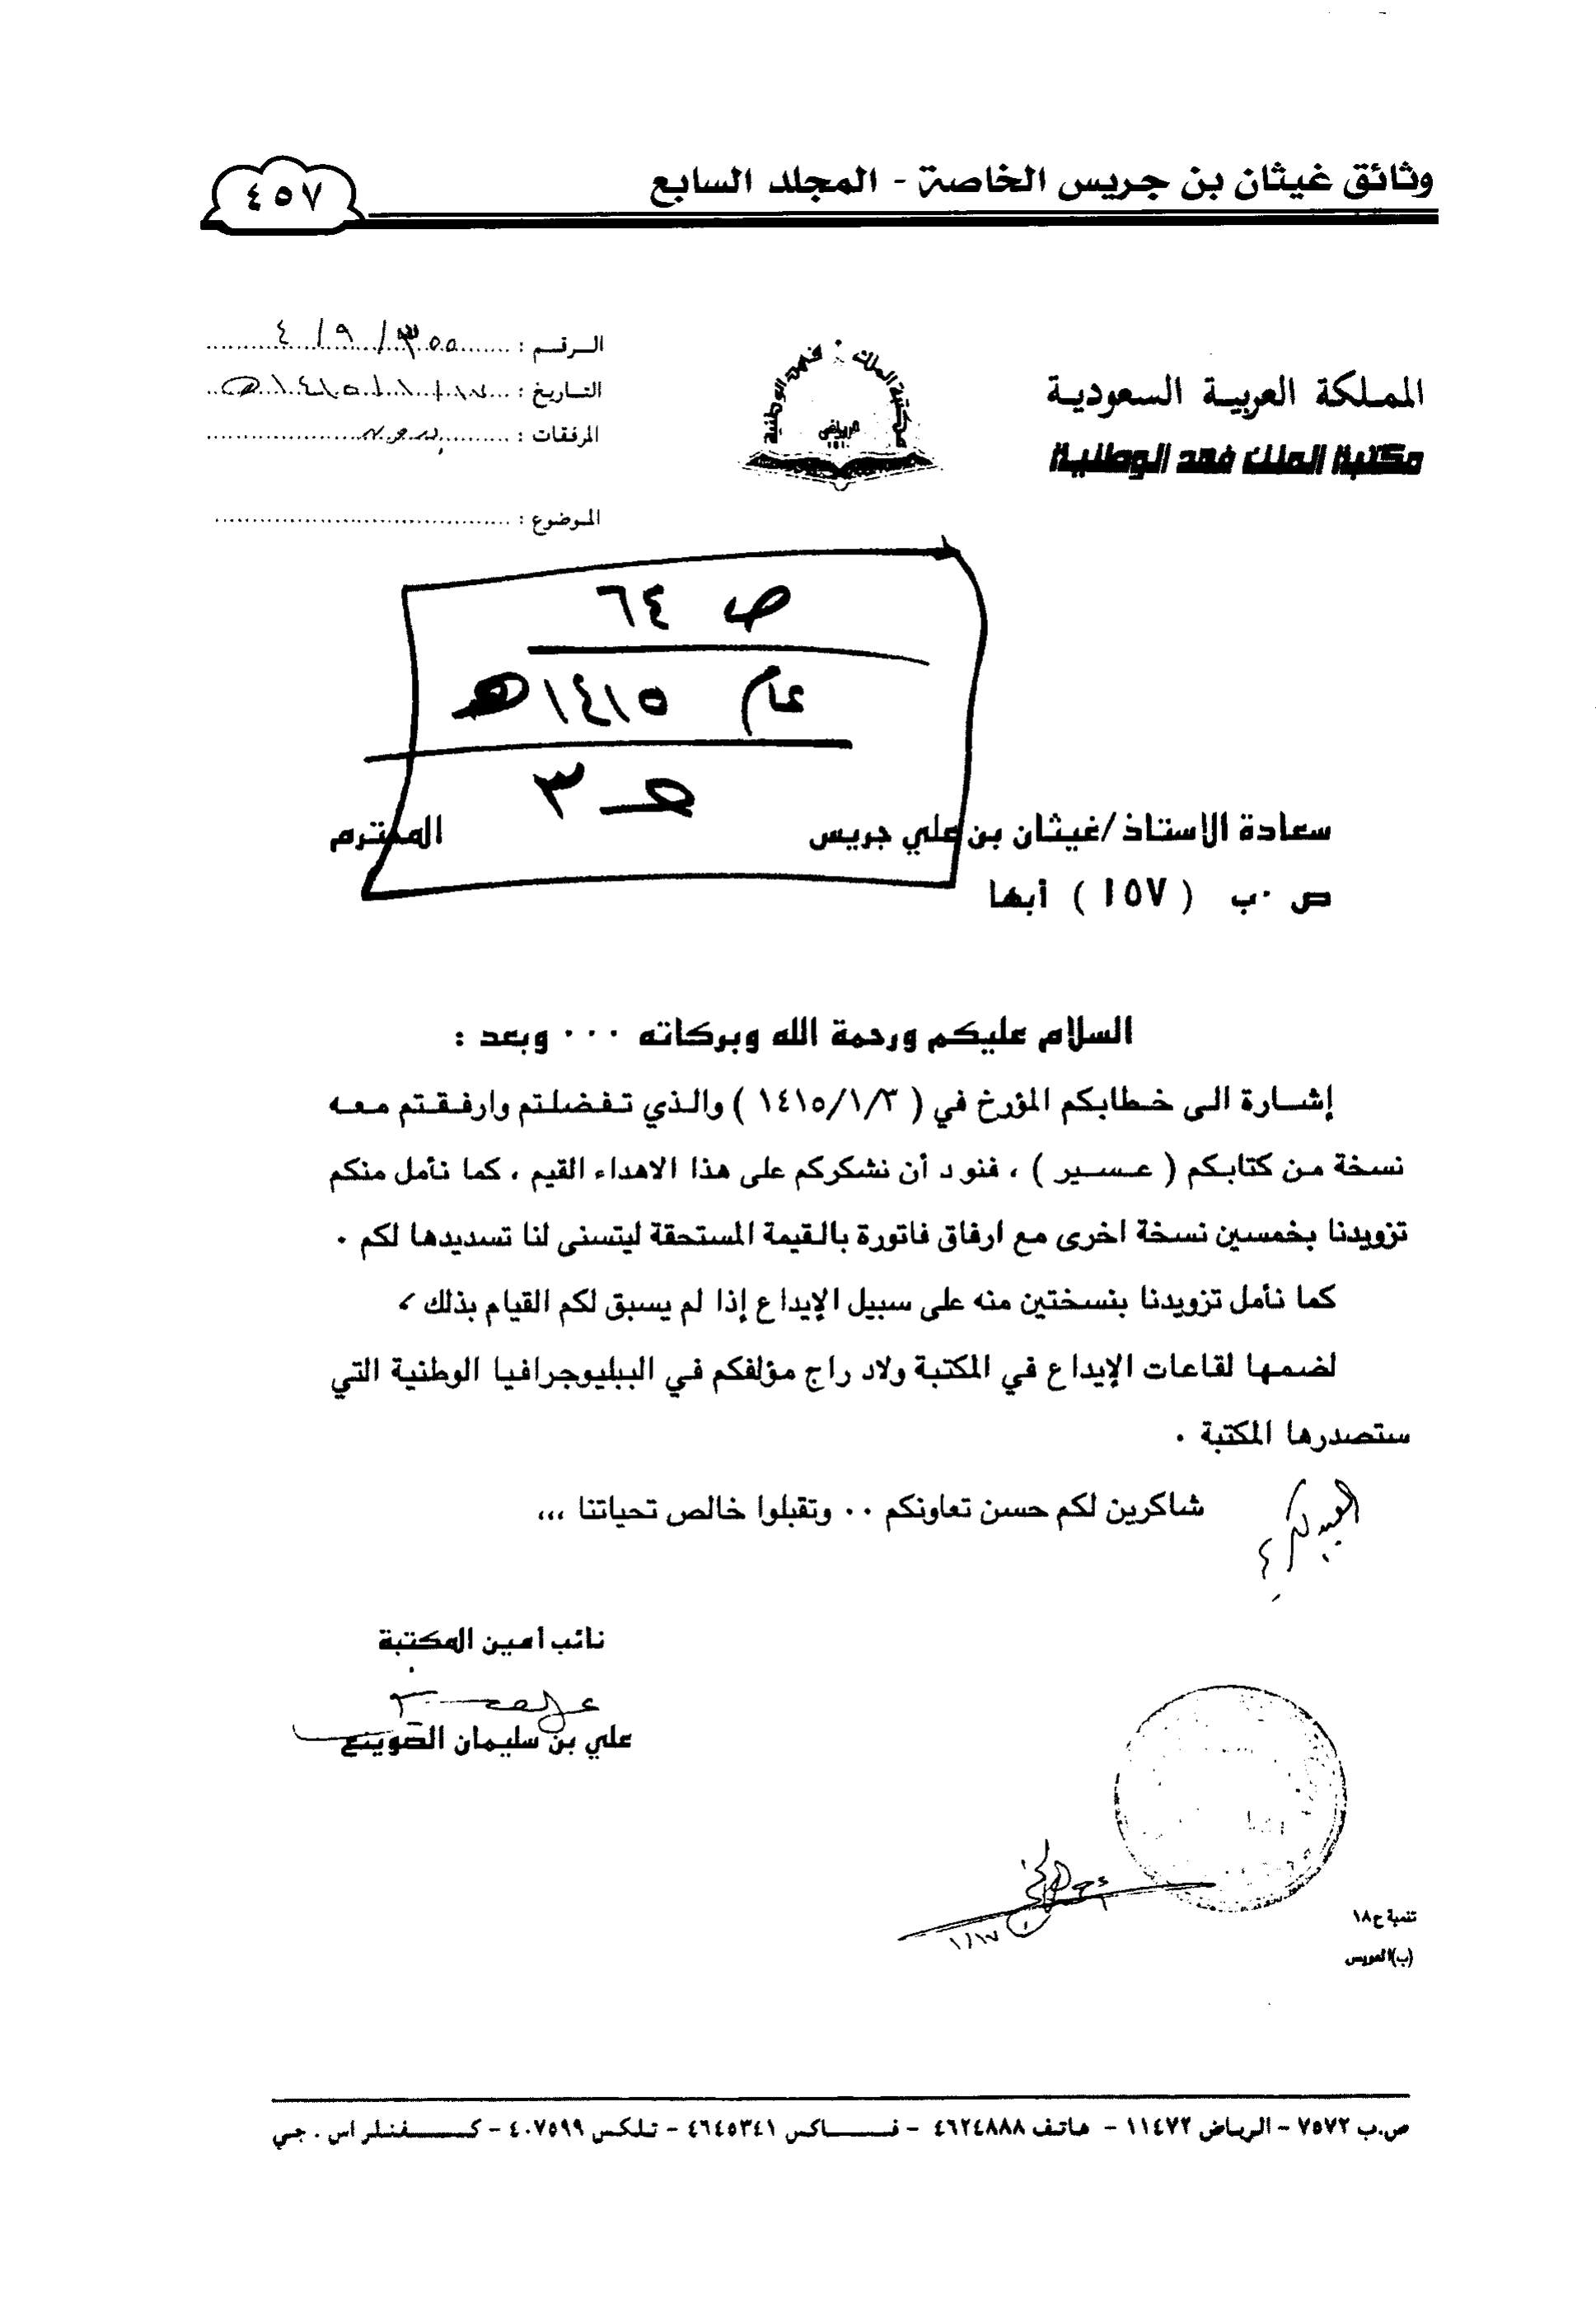 وثائق غيثان بن جريس الخاصة - المجلد السابع
٤٥٧
المملكة العربية السعودية
مكتبة الملك فهد الوطنية
مكتبة الملك فهد الوطنية
الرياض
الرقم : ٣٥٥ / ٩ / ٤
التاريخ : ١٧ / ١ / ١٤١٥هـ
المرفقات : بدون
الموضوع :
ص ٦٤
عام ١٤١٥هـ
حـ ٣
سعادة الاستاذ/غيثان بن علي جريس المحترم
ص ٠ب ( ١٥٧ ) أبها
السلام عليكم ورحمة الله وبركاته ٠٠٠ وبعد :
إشارة الى خطابكم المؤرخ في ( ١٤١٥/١/٣ ) والذي تفضلتم وارفقتم معه
نسخة من كتابكم ( عسير ) ، فنود أن نشكركم على هذا الاهداء القيم ، كما نأمل منكم
تزويدنا بخمسين نسخة اخرى مع ارفاق فاتورة بالقيمة المستحقة ليتسنى لنا تسديدها لكم ٠
كما نأمل تزويدنا بنسختين منه على سبيل الإيداع إذا لم يسبق لكم القيام بذلك ،
لضمها لقاعات الإيداع في المكتبة ولادراج مؤلفكم في الببليوجرافيا الوطنية التي
ستصدرها المكتبة ٠
شاكرين لكم حسن تعاونكم ٠٠ وتقبلوا خالص تحياتنا ،،،
نائب امين المكتبة
علي بن سليمان الصوينع
١/١٧
تنمية ح١٨
(ب)العويس
ص.ب ٧٥٧٢ - الرياض ١١٤٧٢ - هاتف ٤٦٢٤٨٨٨ - فـــاكس ٤٦٤٥٣٤١ - تلكس ٤٠٧٥٩٩ - كـــفنلر اس . جي